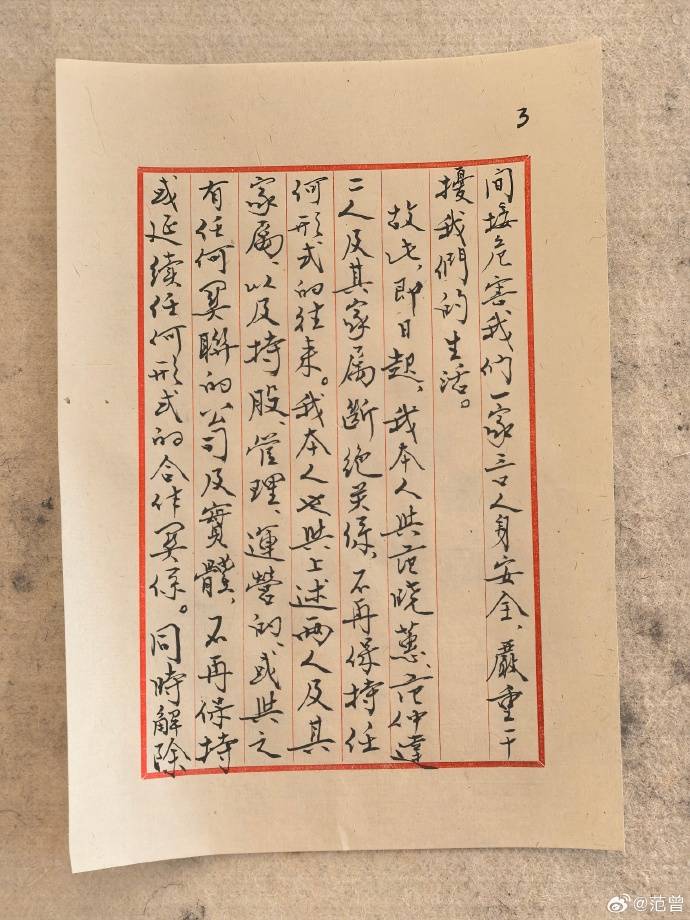 3
间接危害我们一家三口人身安全、嚴重干
擾我們的生活。
故此，即日起，我本人与范晓蕙、范仲達
二人及其家属断绝关係，不再保持任
何形式的往来。我本人也与上述两人及其
家属、以及持股、管理、運营的、或与之
有任何関聯的公司及實體、不再保持
或延續任何形式的合作関係。同時解除
@范曾